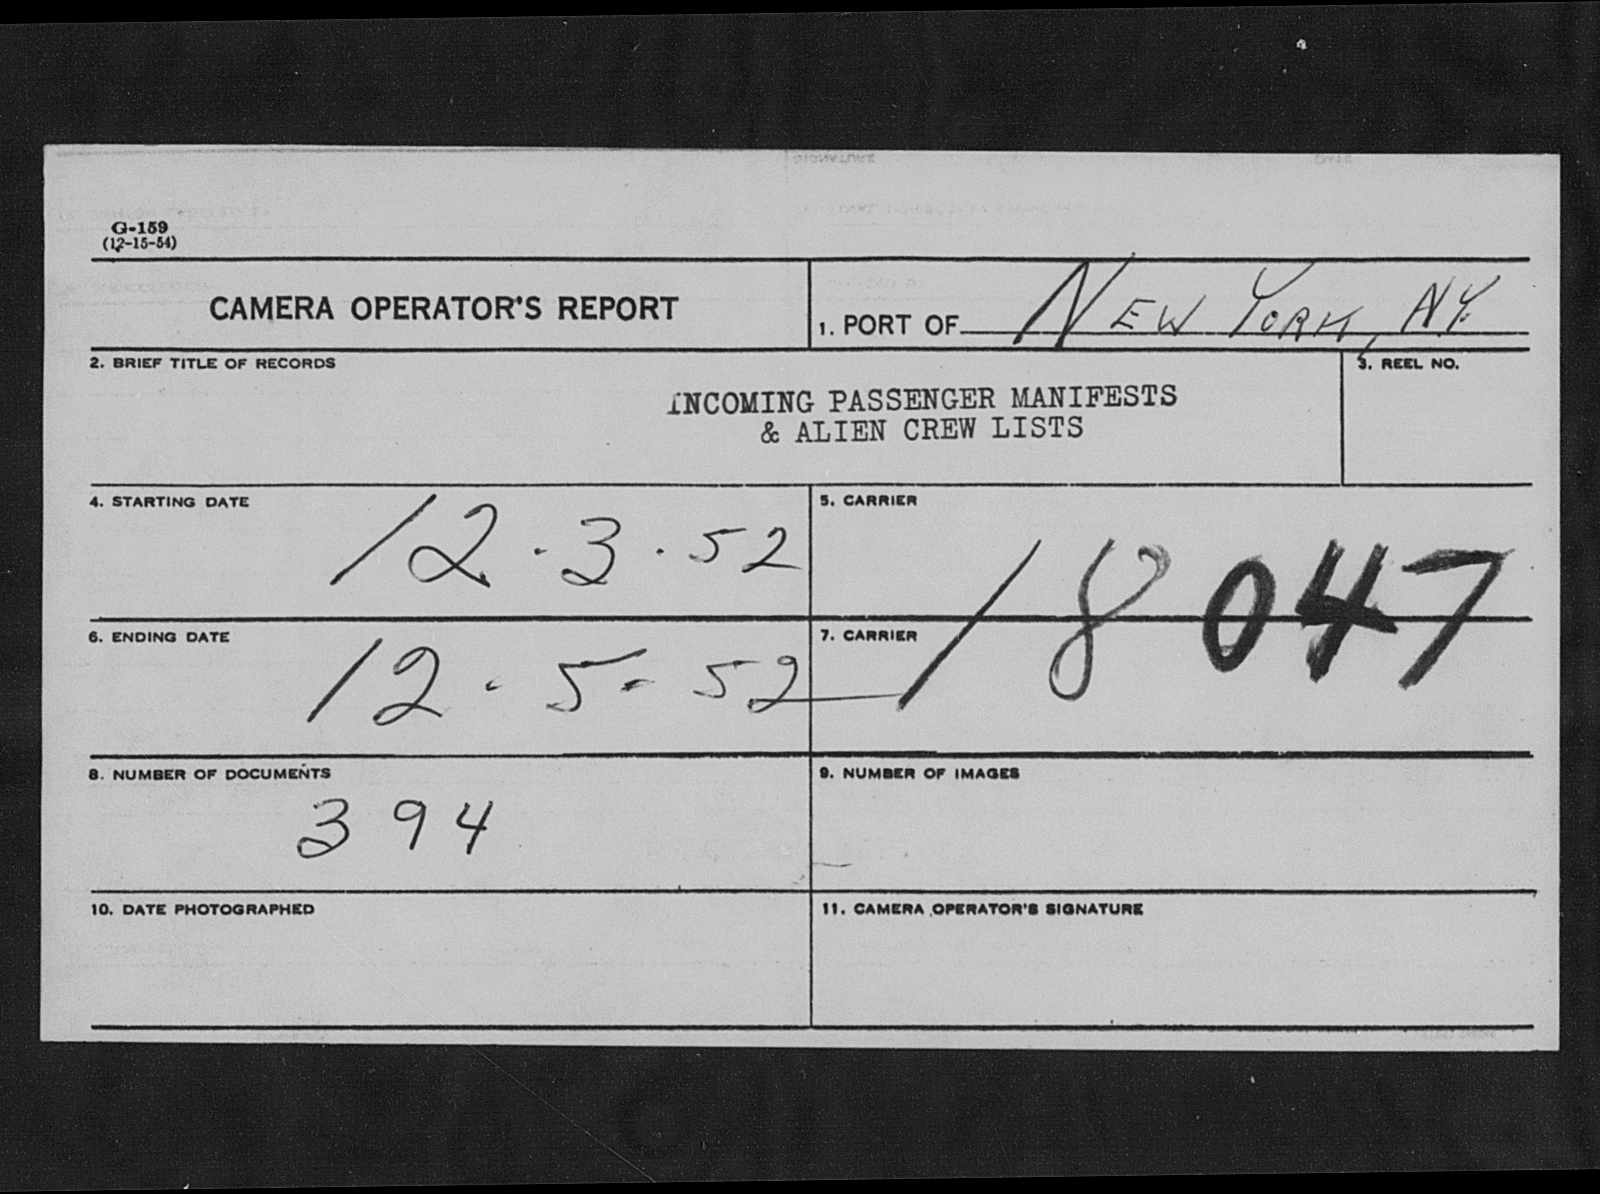 G-159
(12-15-54)
CAMERA OPERATOR'S REPORT
1. PORT OF NEW YORK, N.Y.
2. BRIEF TITLE OF RECORDS
INCOMING PASSENGER MANIFESTS
& ALIEN CREW LISTS
3. REEL NO.
4. STARTING DATE
12-3-52
5. CARRIER
18047
6. ENDING DATE
12-5-52
7. CARRIER
8. NUMBER OF DOCUMENTS
394
9. NUMBER OF IMAGES
10. DATE PHOTOGRAPHED
11. CAMERA OPERATOR'S SIGNATURE